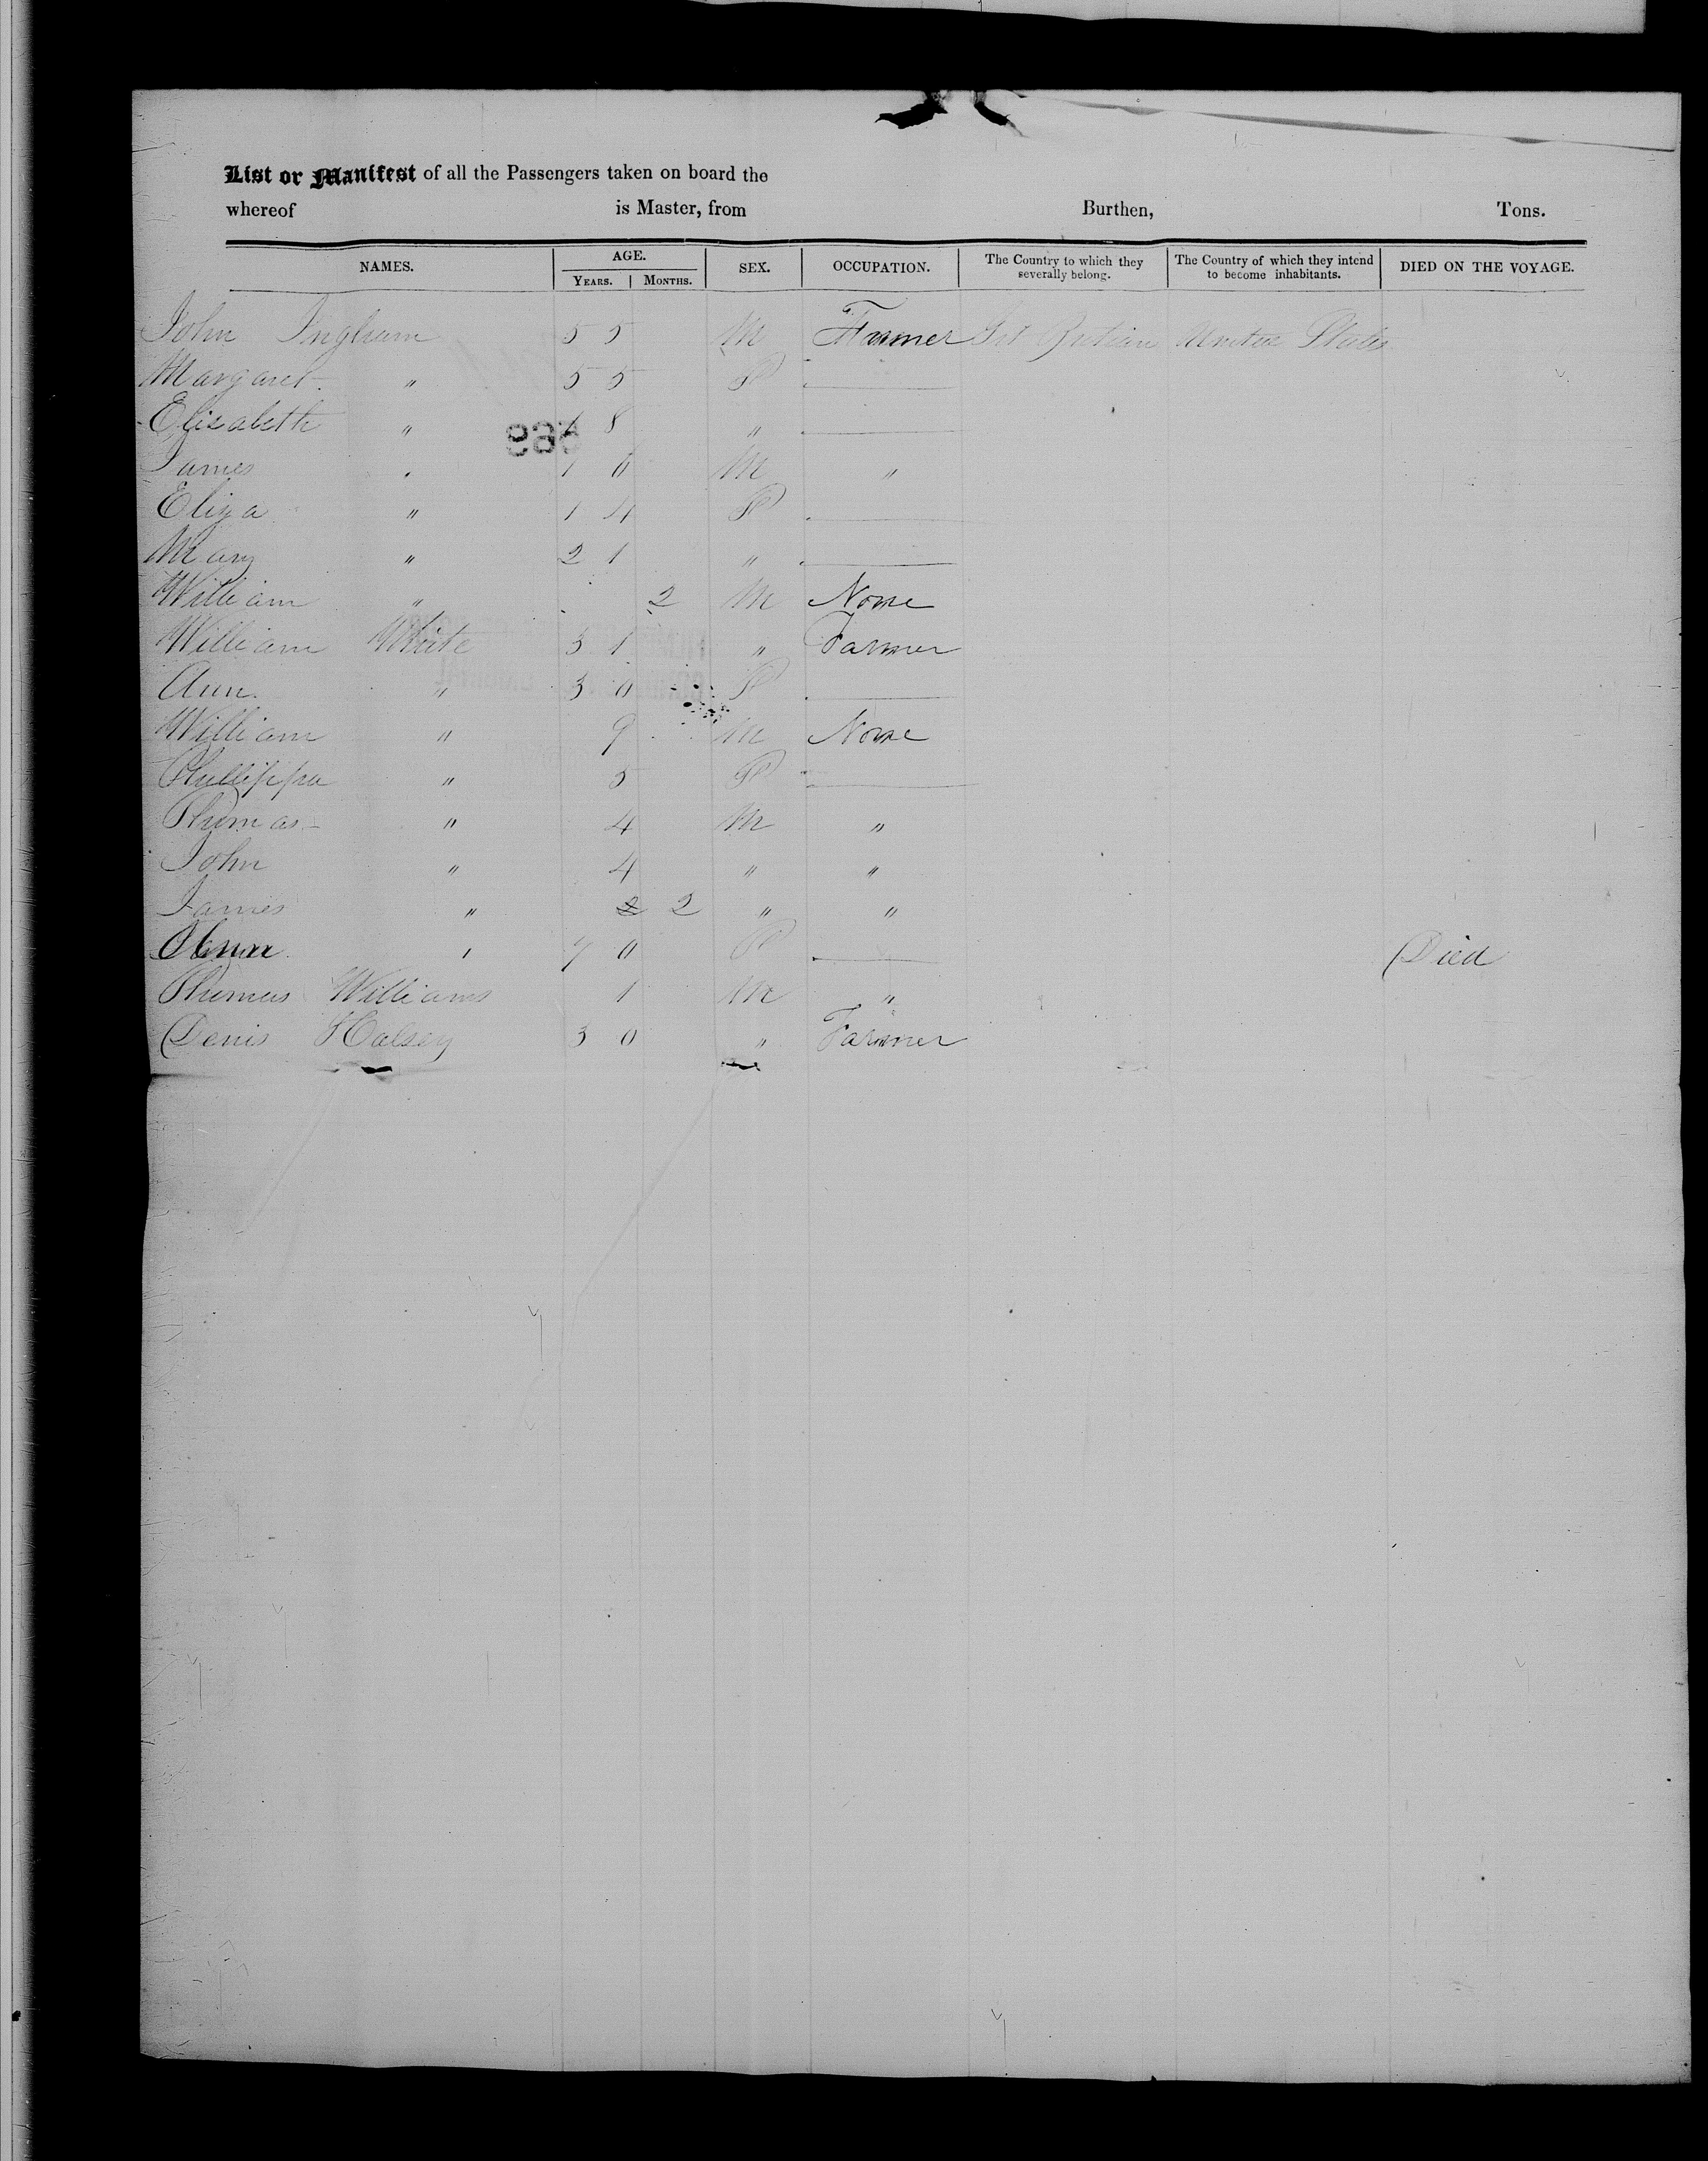 List or Manifest of all the Passengers taken on board the
whereof is Master, from Burthen, Tons.
NAMES. AGE. YEARS. MONTHS. SEX. OCCUPATION. The Country to which they severally belong. The Country of which they intend to become inhabitants. DIED ON THE VOYAGE.
John Ingham 55 M Farmer Grt Britian United States
Margaret " 55 F
Elisabeth " 18 "
James " 10 M "
Eliza " 14 F
Mary " 21 "
William " 2 M None
William White 31 " Farmer
Ann " 30 F
William " 9 M None
Phillippa " 5 F
Thomas " 4 M "
John " 4 " "
James " 2 " "
" 70 F Died
Thomas Williams 1 M "
Denis Halsey 30 " Farmer